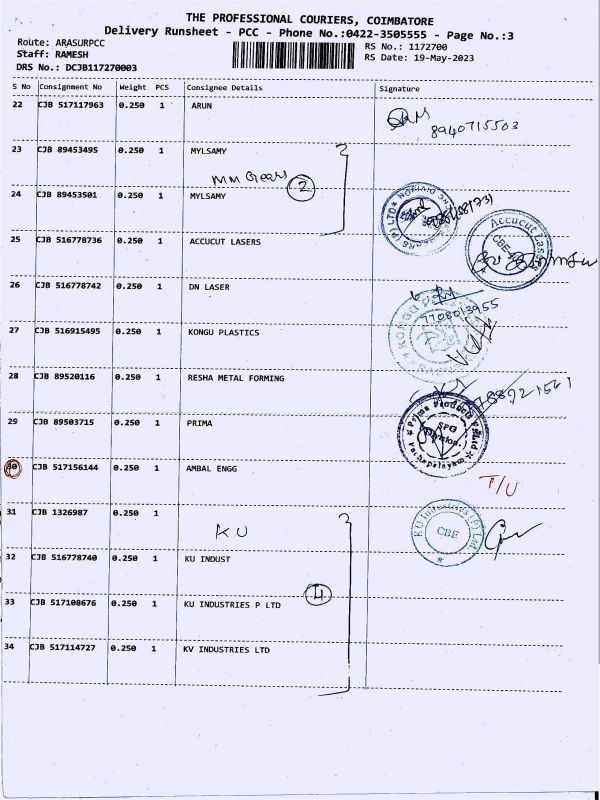 THE PROFESSIONAL COURIERS, COIMBATORE
Delivery Runsheet - PCC - Phone No.:0422-3505555 - Page No.:3
Route: ARASURPCC RS No.: 1172700
Staff: RAMESH RS Date: 19-May-2023
DRS No.: DCJB117270003
S No Consignment No Weight PCS Consignee Details Signature
22 CJB 517117963 0.250 1 ARUN
8940715503
23 CJB 89453495 0.250 1 MYLSAMY
mm Gears 2
24 CJB 89453501 0.250 1 MYLSAMY
25 CJB 516778736 0.250 1 ACCUCUT LASERS
Accucut Lasers
CBE
26 CJB 516778742 0.250 1 DN LASER
7708013955
27 CJB 516915495 0.250 1 KONGU PLASTICS
KONGU
28 CJB 89520116 0.250 1 RESHA METAL FORMING
29 CJB 89503715 0.250 1 PRIMA
Prima Products
SPG
Division
30 CJB 517156144 0.250 1 AMBAL ENGG
T/U
31 CJB 1326987 0.250 1
KU
KU Industries (P) Ltd
CBE
32 CJB 516778740 0.250 1 KU INDUST
33 CJB 517108676 0.250 1 KU INDUSTRIES P LTD
4
34 CJB 517114727 0.250 1 KV INDUSTRIES LTD